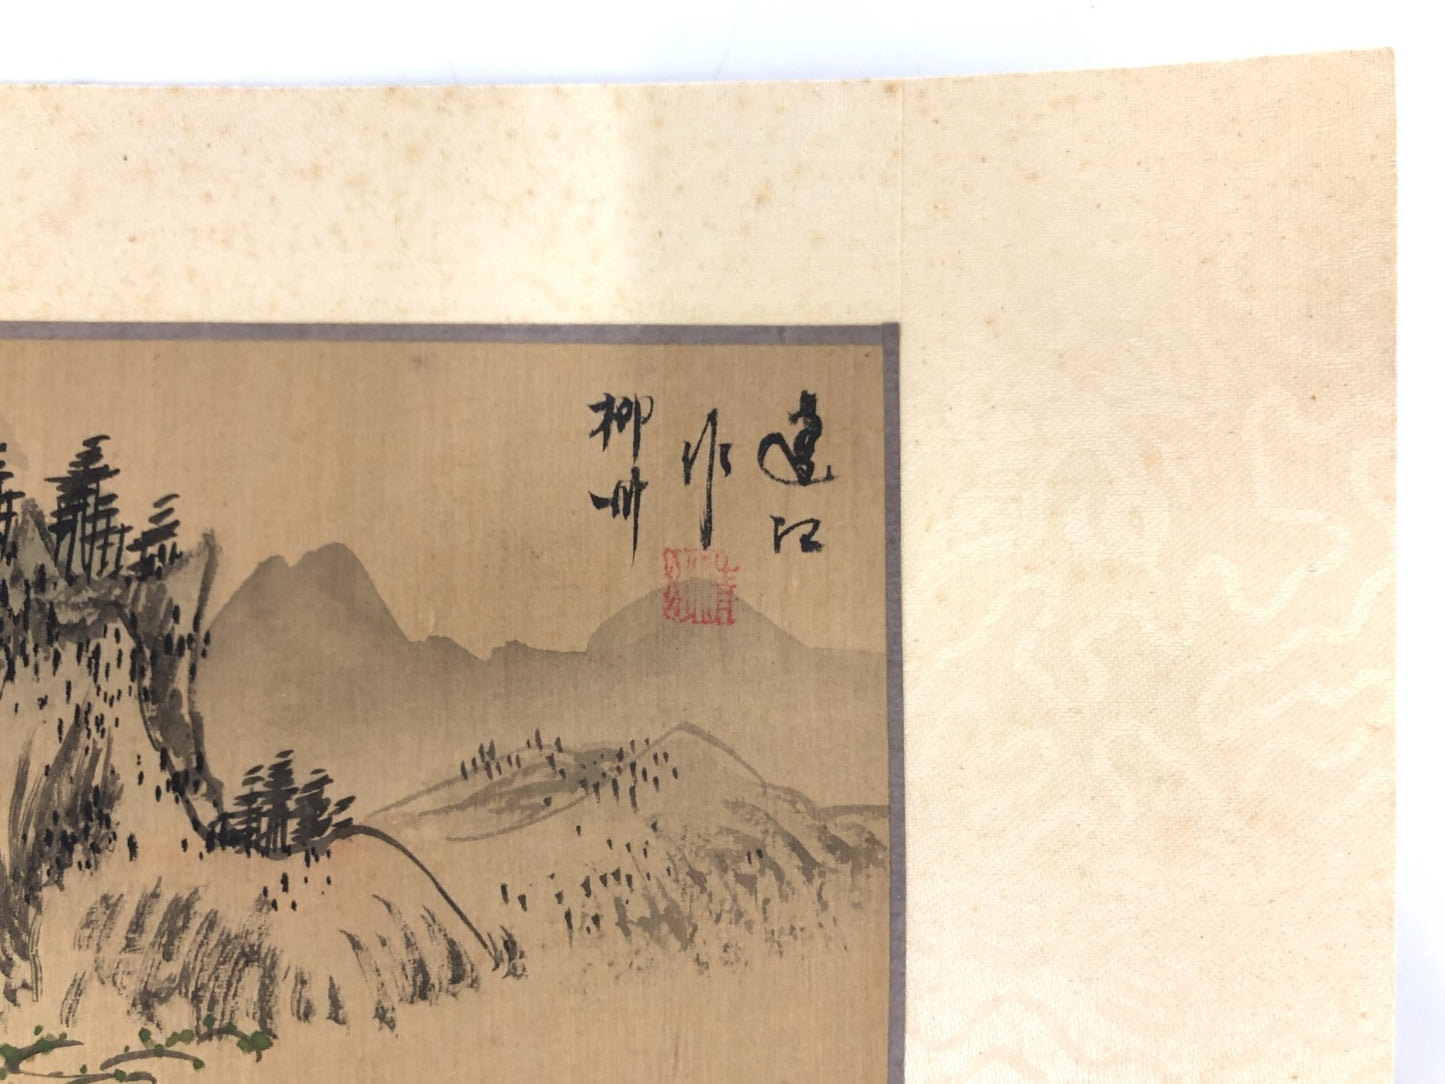 建江
作
柳州